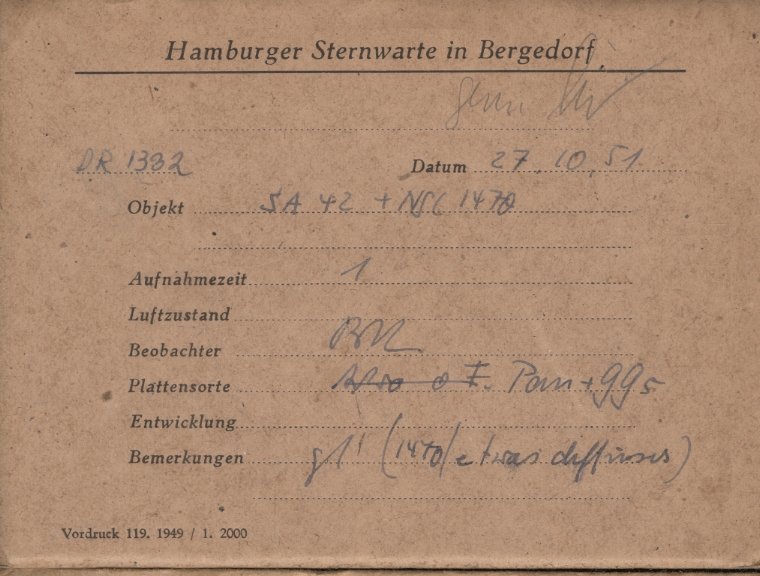 Hamburger Sternwarte in Bergedorf
DR 1332 Datum 27.10.51
Objekt SA 42 + NGC 1470
Aufnahmezeit 1
Luftzustand
Beobachter
Plattensorte Pan + gg5
Entwicklung
Bemerkungen (1470 etwas diffuses)
Vordruck 119. 1949 / 1. 2000